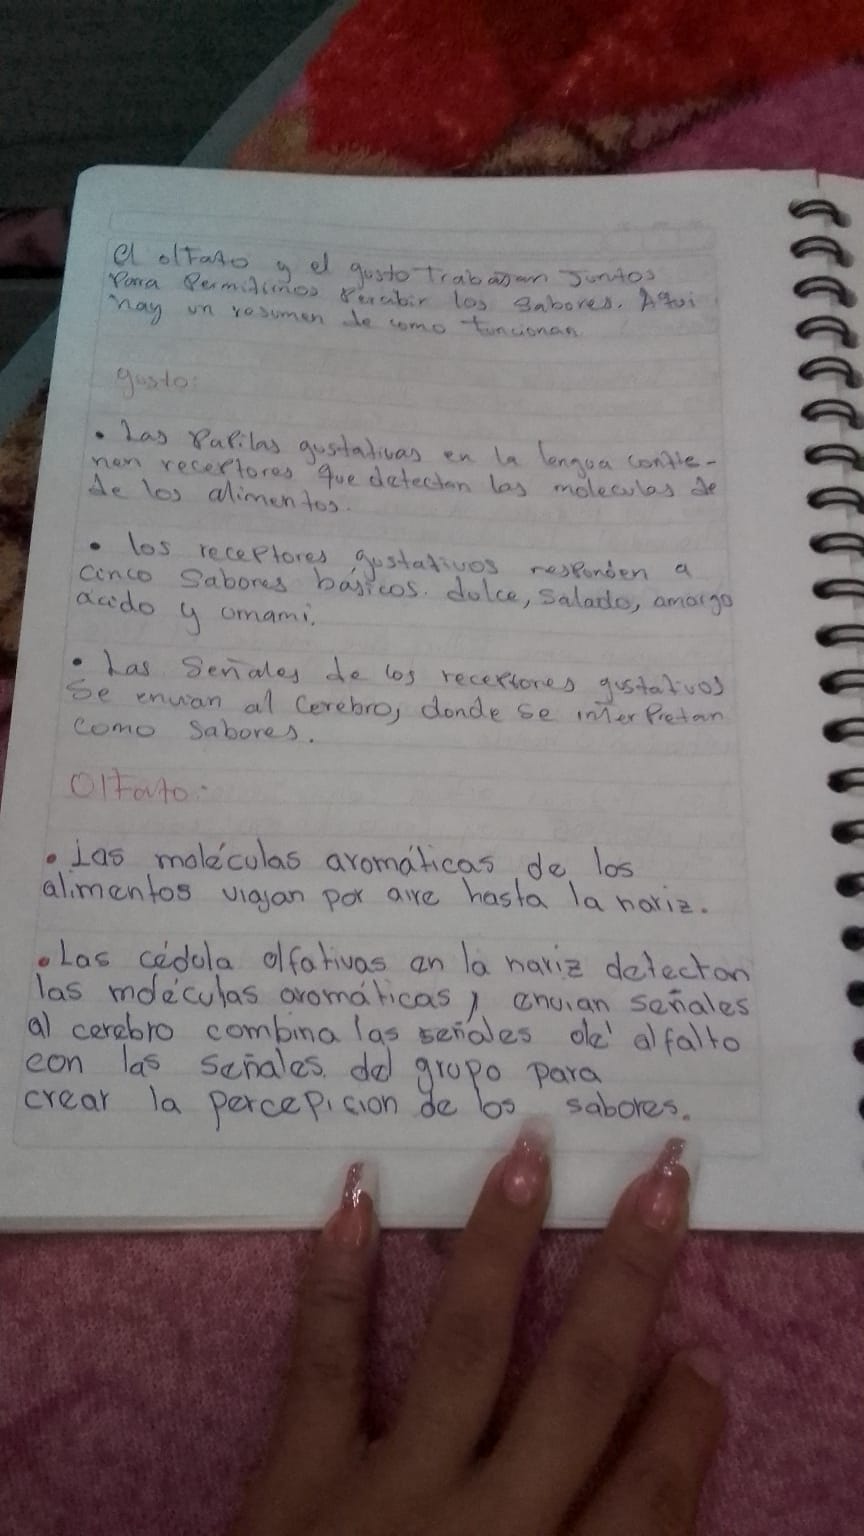 El olfato y el gusto trabajan juntos
Para Permitirnos Percibir los sabores. Aqui
hay un resumen de como funcionan
gusto:
• Las Papilas gustativas en la lengua contie-
nen receptores que detectan las moleculas de
de los alimentos.
• los receptores gustativos responden a
cinco Sabores básicos. dulce, Salado, amargo
acido y umami.
• Las Señales de los receptores gustativos
Se envian al Cerebro, donde se interpretan
como Sabores.
Olfato:
• Las moléculas aromáticas de los
alimentos viajan por aire hasta la nariz.
• Las cédula olfativas en la nariz detectan
las moléculas aromáticas y envian señales
al cerebro combina las señales de' alfalto
con las señales del grupo para
crear la percepicion de los sabores.